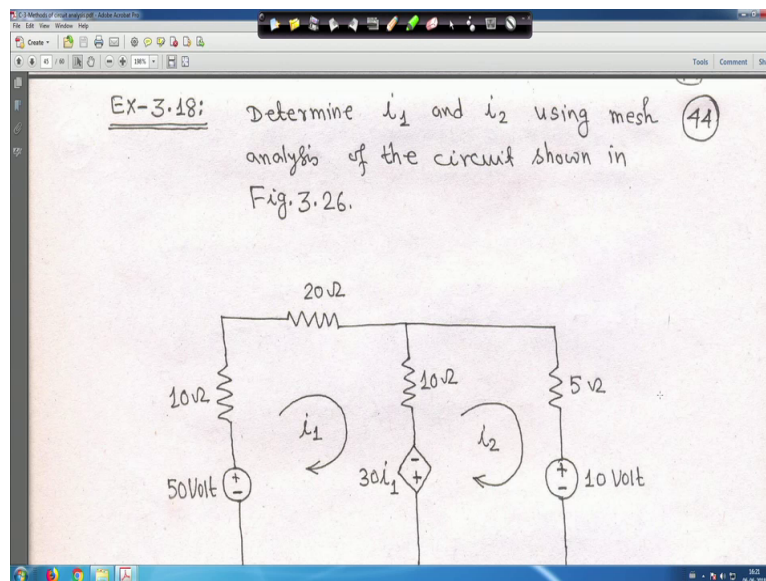 C-3-Methods of circuit analysis.pdf - Adobe Acrobat Pro
File Edit View Window Help
Create
45 / 60
Tools Comment
EX-3.18: Determine i1 and i2 using mesh 44
analysis of the circuit shown in
Fig. 3.26.
20Ω
10Ω
10Ω
5Ω
i1
i2
50Volt
+
-
30i1
-
+
+
-
10 Volt
16:21